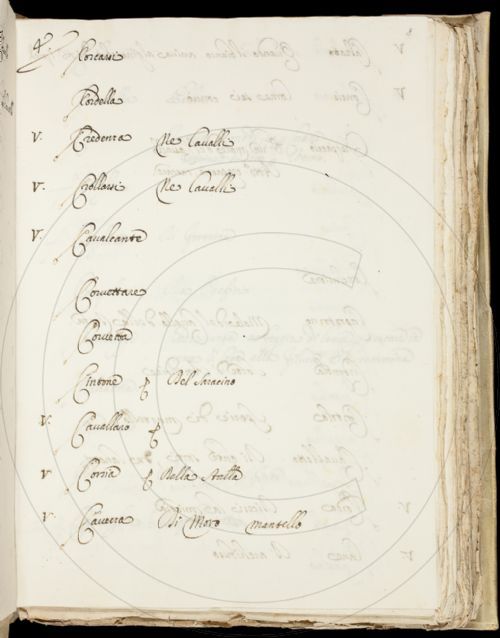 4.
Corcarsi
Cordella
V. Credenza Ne Cavalli
V. Crollarsi Ne Cavalli
V. Cavalcante
Corvettare
Corvetta
Cintone p Del Saracino
V. Cavallaro p
V Corsia p Della Stalla
V. Cavezza Di Moro mantello